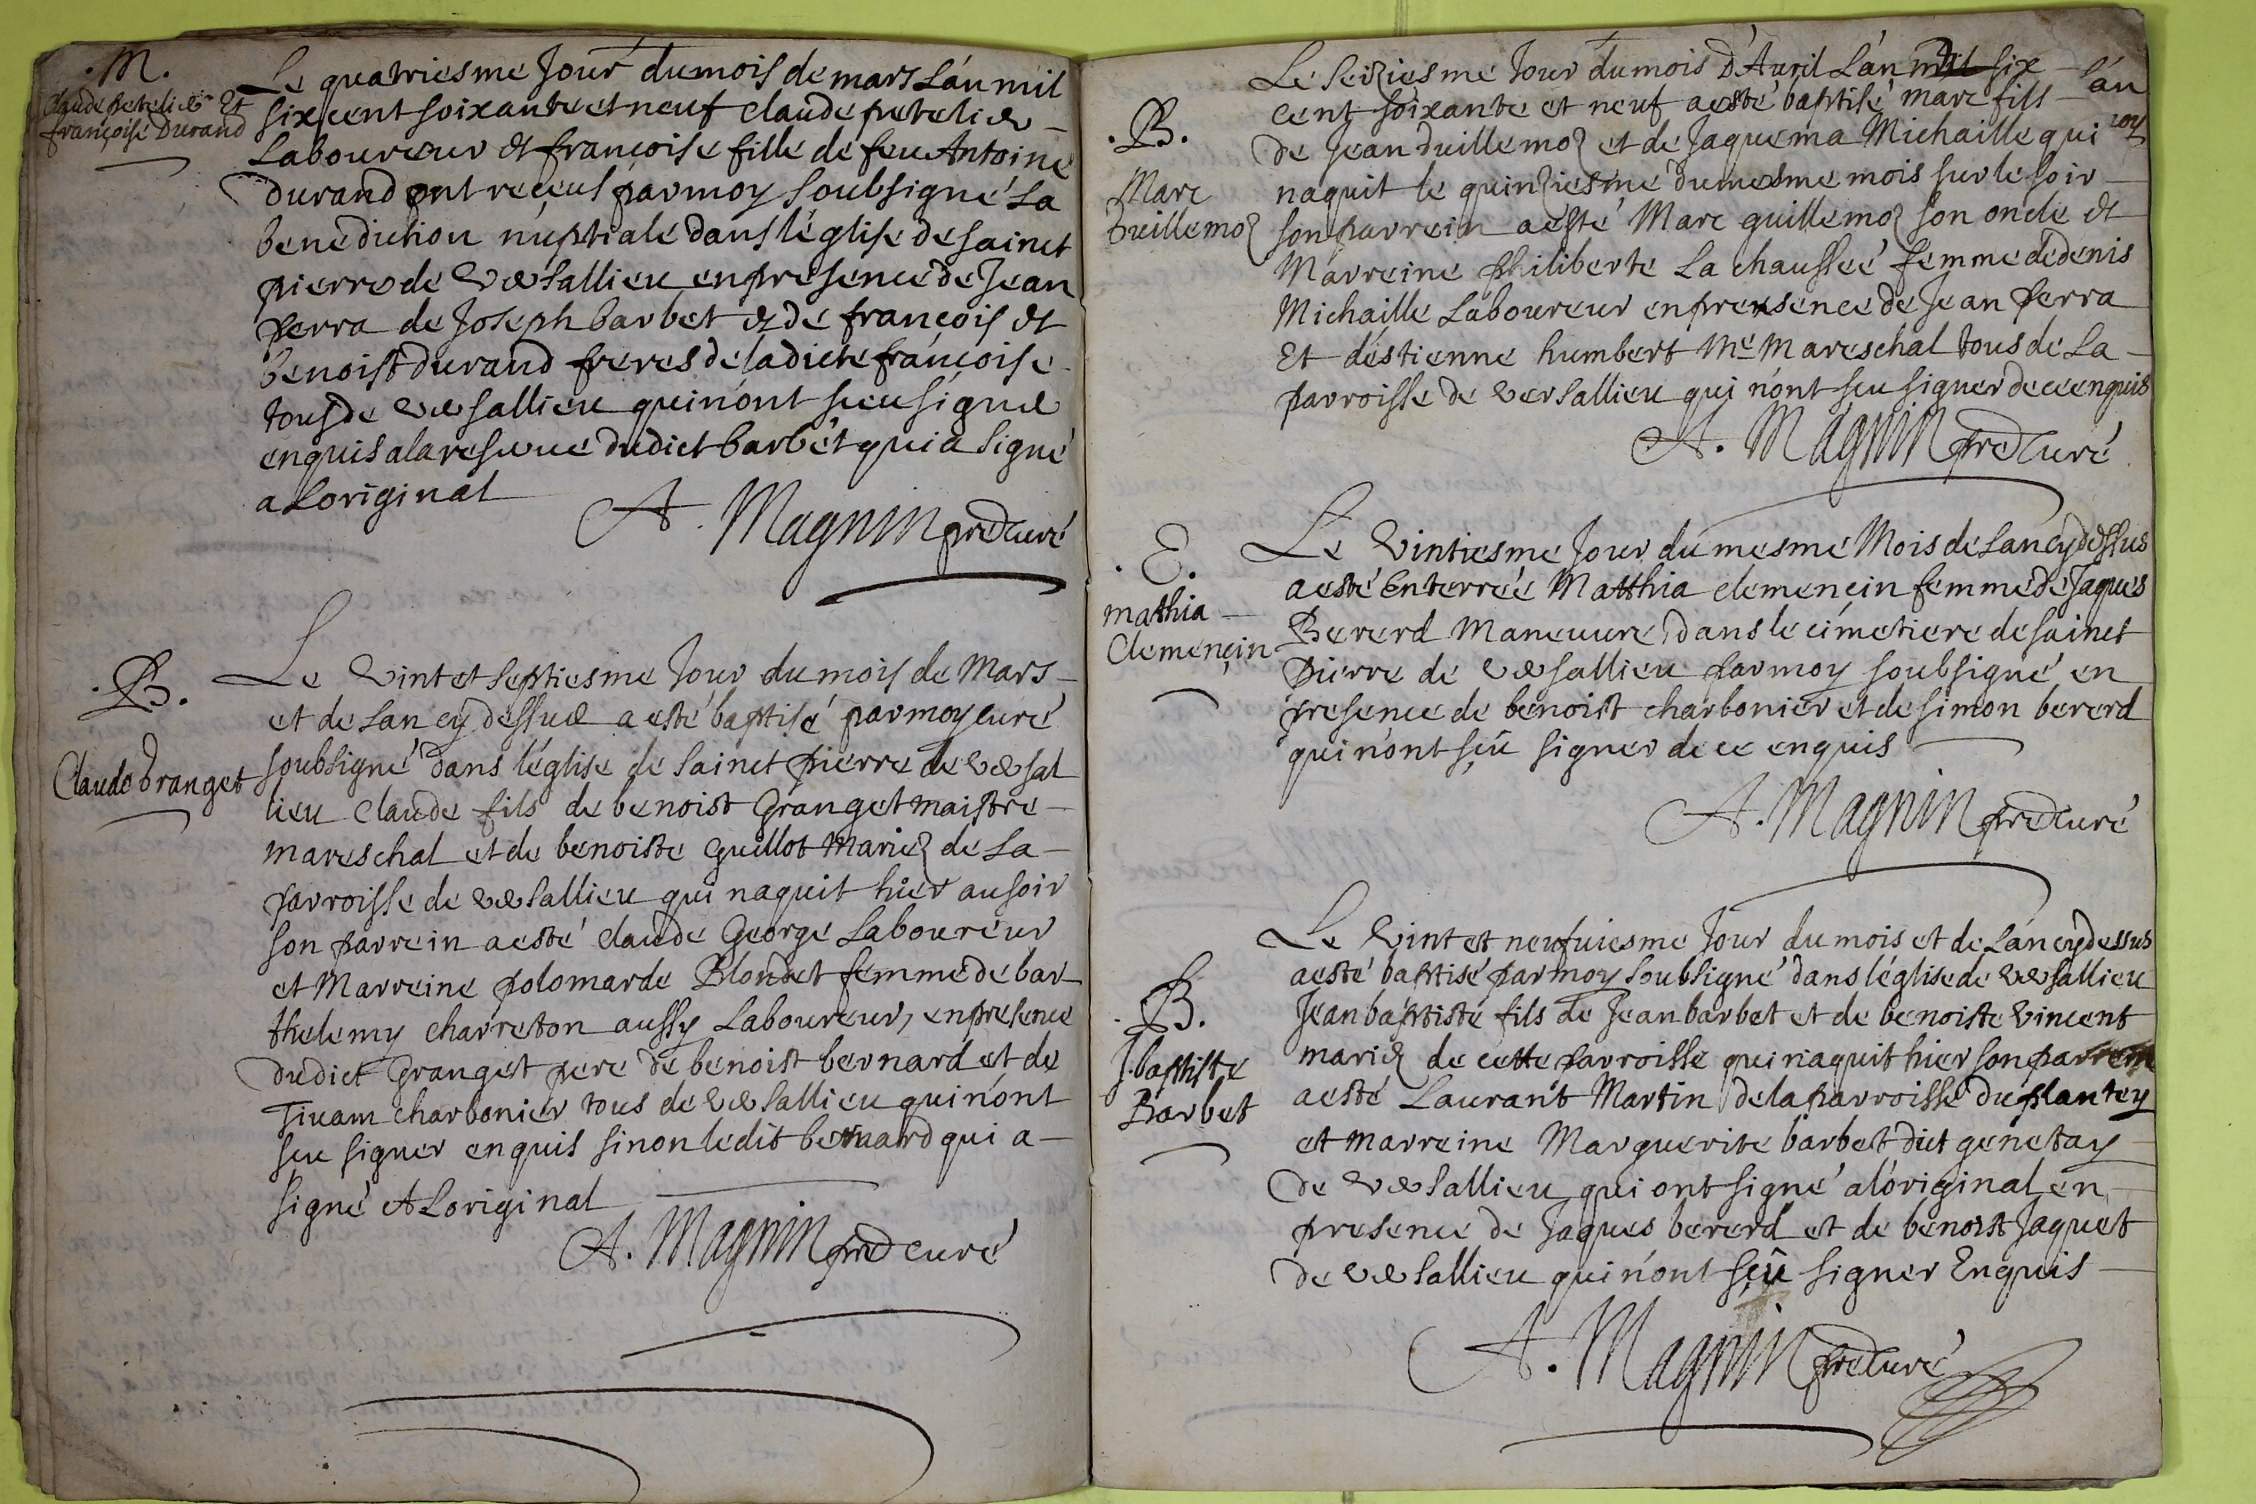 .M.
Claude petelier Et
françoise Durand
Le quatriesme Jour du mois de mars L'an mil
six cent soixante et neuf claude petelier
Laboureur et françoise fille de feu Antoine
durand ont receus par moy soubsigné La
benediction nuptiale dans l'église de sainct
pierre de Versallieu en presence de Jean
perra de Joseph barbet et de françois et
benoist durand freres de ladicte françoise
tous de versallieu qui n'ont sceu signer
enquis a la reserve dudict barbet qui a signé
a Loriginal
A. Magnin pre Curé
.B.
Claude Granget
Le Vint et septiesme Jour du mois de Mars
et de Lan cy dessus a esté baptisé par moy curé
soubsigné dans l'église de sainct pierre de versal
lieu claude fils de benoist Granget maistre
mareschal et de benoiste Guillot Mariez de La
parroisse de versallieu qui naquit hier au soir
son parrein a esté claude George Laboureur
et Marreine polomarde Blondet femme de bar
thelemy charreton aussy Laboureur, en presence
dudict Granget pere de benoist bernard et de
charbonier tous de versallieu qui n'ont
sçu signer enquis sinon ledit bernard qui a
signé A Loriginal
A. Magnin pre curé
Le seiziesme Jour du mois D'Avril L'an mil six L'an
cent soixante et neuf a esté baptisé marc fils
de Jean Guillemoz et de Jaquema Michaille qui
naquit le quinziesme du mesme mois sur le soir
son parrein a esté Marc guillemoz son oncle et
Marreine philiberte La chaussée femme de denis
Michaille Laboureur en presence de Jean perra
Et destienne humbert Me Mareschal tous de La
parroisse de versallieu qui n'ont sçu signer de ce enquis
A. Magnin pre Curé
.B.
Marc
Guillemoz
.E.
mathia
Clemençin
Le Vintiesme Jour du mesme Mois de Lan cy dessus
a esté Enterrée Matthia clemençin femme de Jaques
Bererd Maneuvre dans le cimetiere de sainct
pierre de versallieu par moy soubsigné en
presence de benoist charbonier et de simon bererd
qui n'ont sçû signer de ce enquis
A. Magnin pre Curé
.B.
J. baptiste
Barbet
Le Vint et neufuiesme Jour du mois et de L'an cy dessus
a esté baptisé par moy soubsigné dans l'église de versallieu
Jean baptiste fils de Jean barbet et de benoiste Vincent
mariez de cette parroisse qui naquit hier son parrein
a esté Laurant Martin de la parroisse du plantey
et marreine Marguerite barbet dict genetay
de versallieu qui ont signé a l'original en
presence de Jaques bererd et de benoist Jaquet
de versallieu qui n'ont sçû signer Enquis
A. Magnin pre Curé